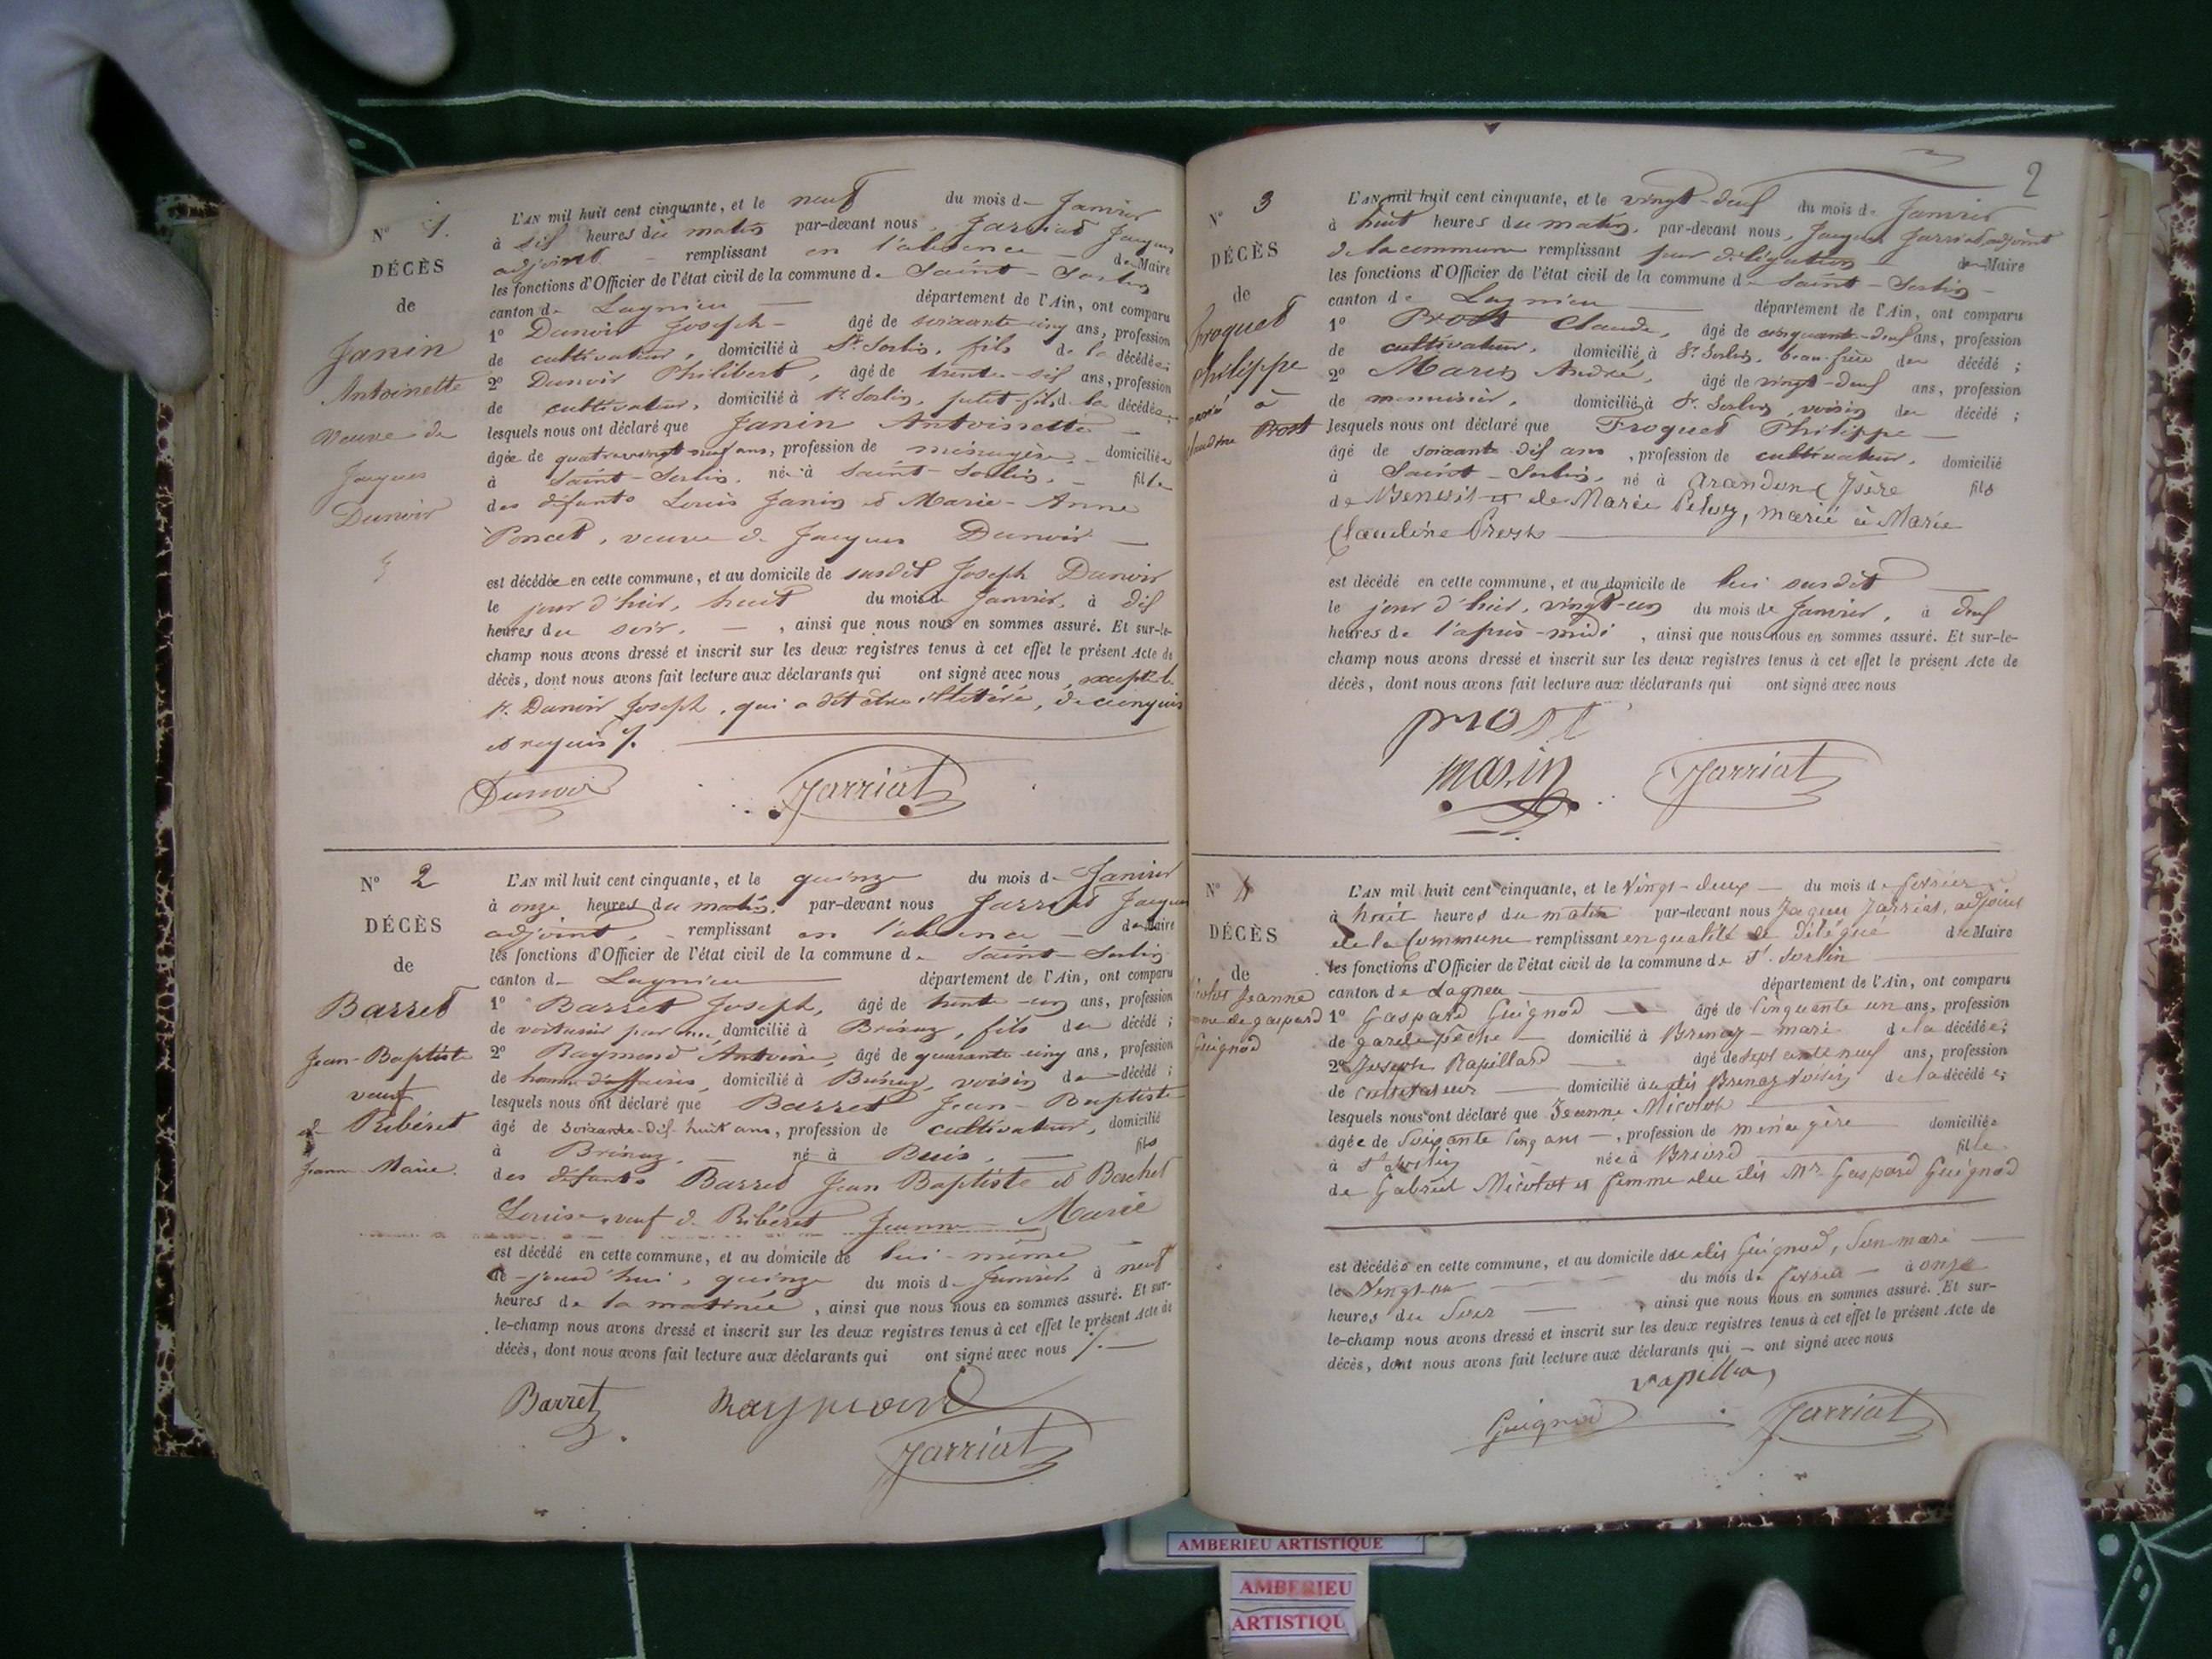 N° 1.
DÉCÈS
de
Janin
Antoinette
veuve de
Jacques
Dunoir
L'AN mil huit cent cinquante, et le neuf du mois de Janvier
à dix heures du matin par-devant nous, Jarriat Jacques
adjoint remplissant en l'absence de Maire
les fonctions d'Officier de l'état civil de la commune de Saint-Sorlin
canton de Lagnieu département de l'Ain, ont comparu
1° Dunoir Joseph âgé de soixante-cinq ans, profession
de cultivateur, domicilié à St. Sorlin, fils de la décédée;
2° Dunoir Philibert, âgé de trente-six ans, profession
de cultivateur, domicilié à St Sorlin, petit-fils de la décédée;
lesquels nous ont déclaré que Janin Antoinette
âgée de quatre-vingt-neuf ans, profession de ménagère, domiciliée
à Saint-Sorlin, née à Saint-Sorlin, fille
des défunts Louis Janin et Marie-Anne
Poncet, veuve de Jacques Dunoir
est décédée en cette commune, et au domicile de susdit Joseph Dunoir
le jour d'hier, huit du mois de Janvier, à dix
heures du soir, , ainsi que nous nous en sommes assuré. Et sur-le-
champ nous avons dressé et inscrit sur les deux registres tenus à cet effet le présent Acte de
décès, dont nous avons fait lecture aux déclarants qui ont signé avec nous, excepté le
sr. Dunoir Joseph, qui a dit être illétéré, de ce enquis
et requis ./.
Dunoir Jarriat
N° 2
DÉCÈS
de
Barret
Jean-Baptiste
veuf
de Ribéret
Jeanne Marie.
L'AN mil huit cent cinquante, et le quinze du mois de Janvier
à onze heures du matin, par-devant nous Jarriat Jacques
adjoint, remplissant en l'absence de Maire
les fonctions d'Officier de l'état civil de la commune de Saint-Sorlin
canton de Lagnieu département de l'Ain, ont comparu
1° Barret Joseph, âgé de trente-un ans, profession
de voiturier par domicilié à fils du décédé;
2° Raymond Antoine, âgé de quarante-cinq ans, profession
de homme d'affaires, domicilié à voisin du décédé;
lesquels nous ont déclaré que Barret Jean-Baptiste
âgé de soixante-dix-huit ans, profession de cultivateur, domicilié
à né à Buis, fils
des défunts Barret Jean Baptiste et
Louise, veuf de Ribéret Jeanne Marie
est décédé en cette commune, et au domicile de lui-même
ce-jourd'hui, quinze du mois de Janvier à neuf
heures de la matinée, ainsi que nous nous en sommes assuré. Et sur-
le-champ nous avons dressé et inscrit sur les deux registres tenus à cet effet le présent Acte de
décès, dont nous avons fait lecture aux déclarants qui ont signé avec nous ./.
Barret Raymond
Jarriat
2
N° 3
DÉCÈS
de
Froquet
Philippe
marié à
Claudine Prost
L'AN mil huit cent cinquante, et le vingt-deux du mois de Janvier
à huit heures du matin, par-devant nous, Jacques Jarriat, adjoint
de la commune remplissant par délégation de Maire
les fonctions d'Officier de l'état civil de la commune de Saint-Sorlin
canton de Lagnieu département de l'Ain, ont comparu
1° Prost Claude, âgé de cinquante-deux ans, profession
de cultivateur, domicilié à St. Sorlin, beau-frère du décédé;
2° Marin André, âgé de vingt-deux ans, profession
de menuisier, domicilié à St. Sorlin, voisin du décédé;
lesquels nous ont déclaré que Froquet Philippe
âgé de soixante-dix ans, profession de cultivateur, domicilié
à Saint-Sorlin, né à Arandon (Isère fils
de Benoit et de Marie marié à Marie
Claudine
est décédé en cette commune, et au domicile de lui susdit
le jour d'hier, vingt-un du mois de Janvier, à deux
heures de l'après-midi, ainsi que nous nous en sommes assuré. Et sur-le-
champ nous avons dressé et inscrit sur les deux registres tenus à cet effet le présent Acte de
décès, dont nous avons fait lecture aux déclarants qui ont signé avec nous
prost
marin Jarriat
N° 4
DÉCÈS
de
Jeanne
de gaspard
Guignod
L'AN mil huit cent cinquante, et le vingt-deux du mois de fevrier
à huit heures du matin par-devant nous Jaques Jarriat, adjoint
de la Commune remplissant en qualité de délégué du Maire
les fonctions d'Officier de l'état civil de la commune de St. Sorlin
canton de Lagneu département de l'Ain, ont comparu
1° Gaspard Guignod âgé de Cinquante un ans, profession
de garde pêche domicilié à mari de la décédée;
2° Joseph Rapillard âgé de ans, profession
de cultivateur domicilié au dit voisin de la décédée;
lesquels nous ont déclaré que Jeanne Micolot
âgée de Soixante Cinq ans, profession de ménagère domiciliée
à St Sorlin née à Briord fille
de Gabriel Micolot et femme du dit Mr. Gaspard Guignod
est décédée en cette commune, et au domicile du dit Guignod, Son mari
le Vingt-un du mois de fevrier à onze
heures du Soir, ainsi que nous nous en sommes assuré. Et sur-
le-champ nous avons dressé et inscrit sur les deux registres tenus à cet effet le présent Acte de
décès, dont nous avons fait lecture aux déclarants qui ont signé avec nous
Guignod Jarriat
AMBERIEU ARTISTIQUE
AMBERIEU
ARTISTIQU